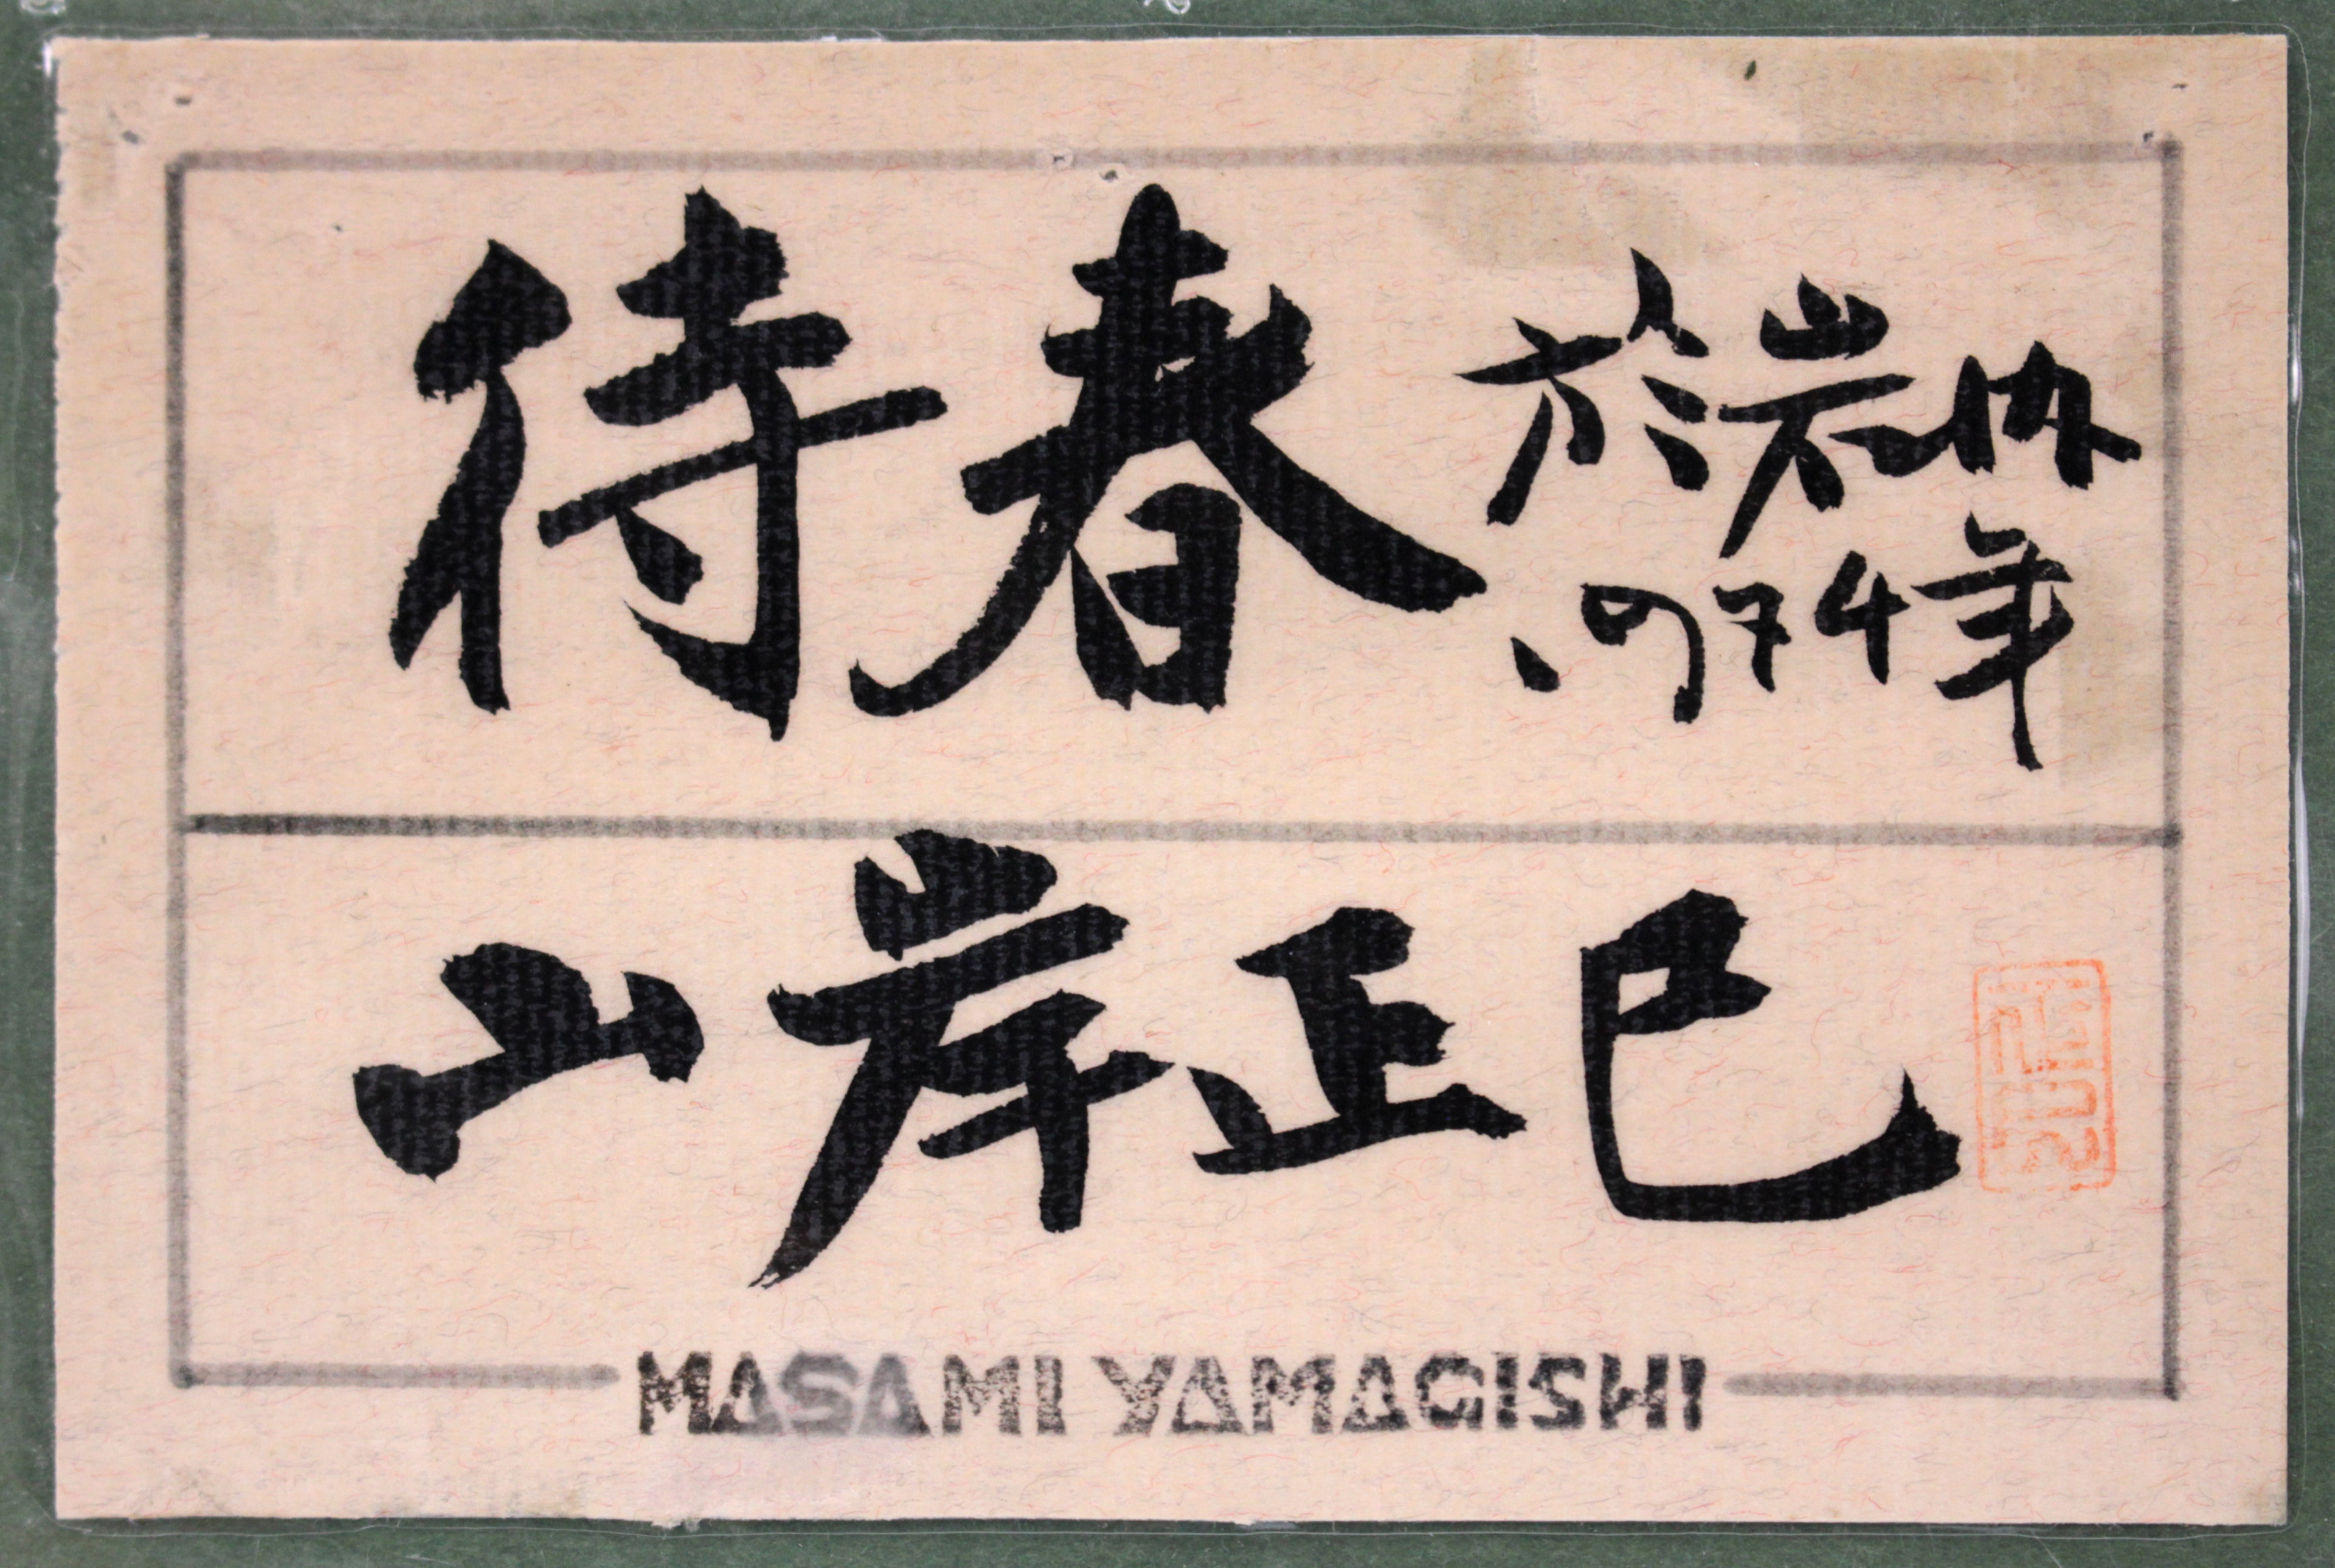 待春
於岩内
1974年
山岸正巳
MASAMI YAMAGISHI